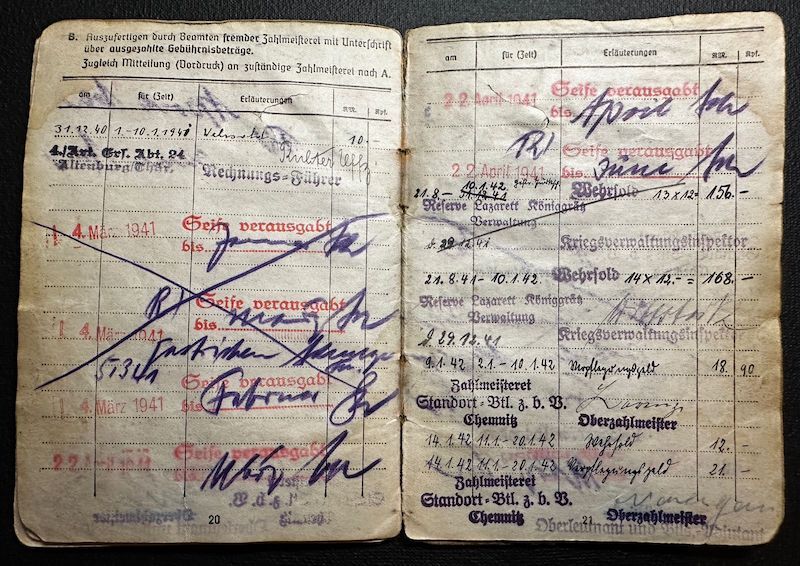 B. Auszufertigen durch Beamten fremder Zahlmeisterei mit Unterschrift
über ausgezahlte Gebührnisbeträge.
Zugleich Mitteilung (Vordruck) an zuständige Zahlmeisterei nach A.
am für (Zeit) Erläuterungen RM. Rpf.
31.12.40 1.-10.1.1941 10.-
4./Art. Ers. Abt. 24
Altenburg/Thür.
Rechnungs-Führer
4. März 1941 Seife verausgabt
bis
4. März 1941 Seife verausgabt
bis
Gestrichen
5.3.41
4. März 1941 Seife verausgabt
bis Februar
22 April 1941 Seife verausgabt
bis März
20
am für (Zeit) Erläuterungen RM. Rpf.
22 April 1941 Seife verausgabt
bis April
22 April 1941 Seife verausgabt
bis Juni
21.8.- 10.1.42 Wehrsold 13x12= 156.-
Reserve Lazarett Königgrätz
Verwaltung
d. 29.12.41 Kriegsverwaltungsinspektor
21.8.41 - 10.1.42. Wehrsold 14x12.-= 168.-
Reserve Lazarett Königgrätz
Verwaltung
d. 29.12.41 Kriegsverwaltungsinspektor
9.1.42 2.1.-10.1.42 Verpflegungsgeld 18. 90
Zahlmeisterei
Standort-Btl. z. b. V.
Chemnitz Oberzahlmeister
14.1.42 11.1.-20.1.42 Wehrsold 12.-
14.1.42 11.1.-20.1.42 Verpflegungsgeld 21.-
Zahlmeisterei
Standort-Btl. z. b. V.
Chemnitz Oberzahlmeister
21